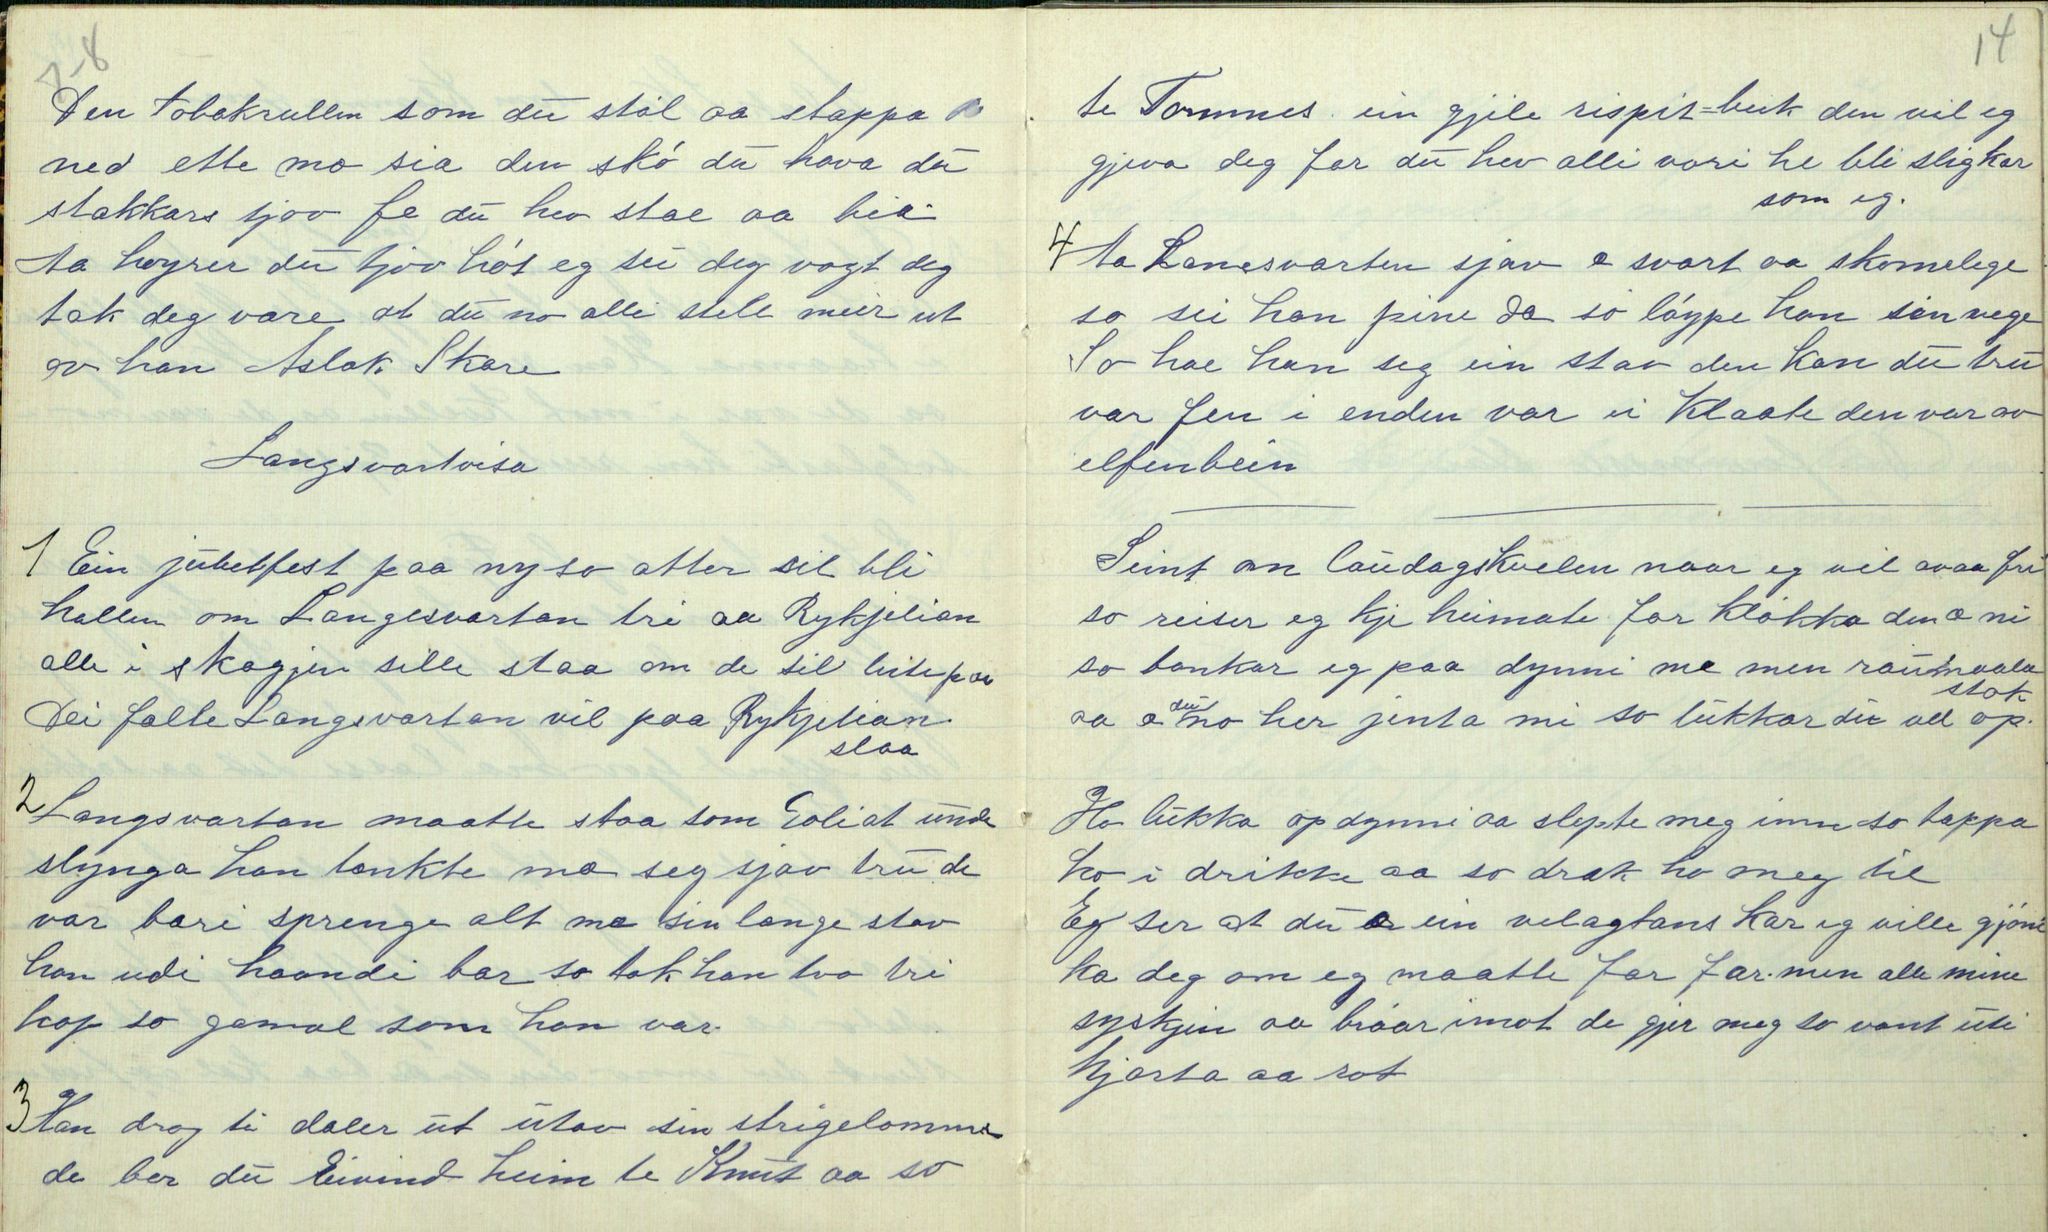 7-8
Den tobakrullen som du stól aa stappa
ned ette mæ sia den skó du hava du
stakkars tjov fe du hev stæ aa bia
ta høyrer du tjov hót eg sei deg vogt deg
tak deg vare at du no alli stele meir ut
av han Aslak Skare
Langsvartvisa
1 Ein jubelfest paa ny so atter sil bli
hallen om Langesvartan tri aa Rykjelian
alle i skogjen sille staa om de sil leite paa
Dei falle Langsvartan vil paa Rykjelian
slaa
2 Langsvartan maatte staa som Goliat unde
slynga han tenkte mæ seg sjøv tru de
var bare sprenge alt mæ sin lange stav
han udi haandi bar so tok han tvo tri
hop so gamal som han var.
3 Han drog ti daler ut utav sin strigelomme
de ber du Eivind heim te Knut aa so
14
te Tommes ein gjile rispit=beik den vil eg
gjeva deg for du hev alli vori he bli slig kar
som eg.
4 Ta Lanesvarten sjøv æ svart aa skomelege
so sei han pine dæ so løype han sin vege
So hae han seg ein stav den kan du tru
var fen i enden var ei klaate den var av
elfenbein
Seint om laudagskvelen naar eg vil avaa fri
so reiser eg kje heimate for klokka den æ ni
so bankar eg paa dynni mæ men raumaala
stok
aa æ du no her jenta mi so lukkar du vel op.
Ho lukka op dynni aa slepte meg inn so tappa
ho i drikke aa so drak ho meg til
Eg ser at du er ein velagtans kar eg ville gjóne
ha deg om eg maatte for far. men alle mine
syskjen aa bróar imot de gjer meg so vont uti
hjarta aa rot